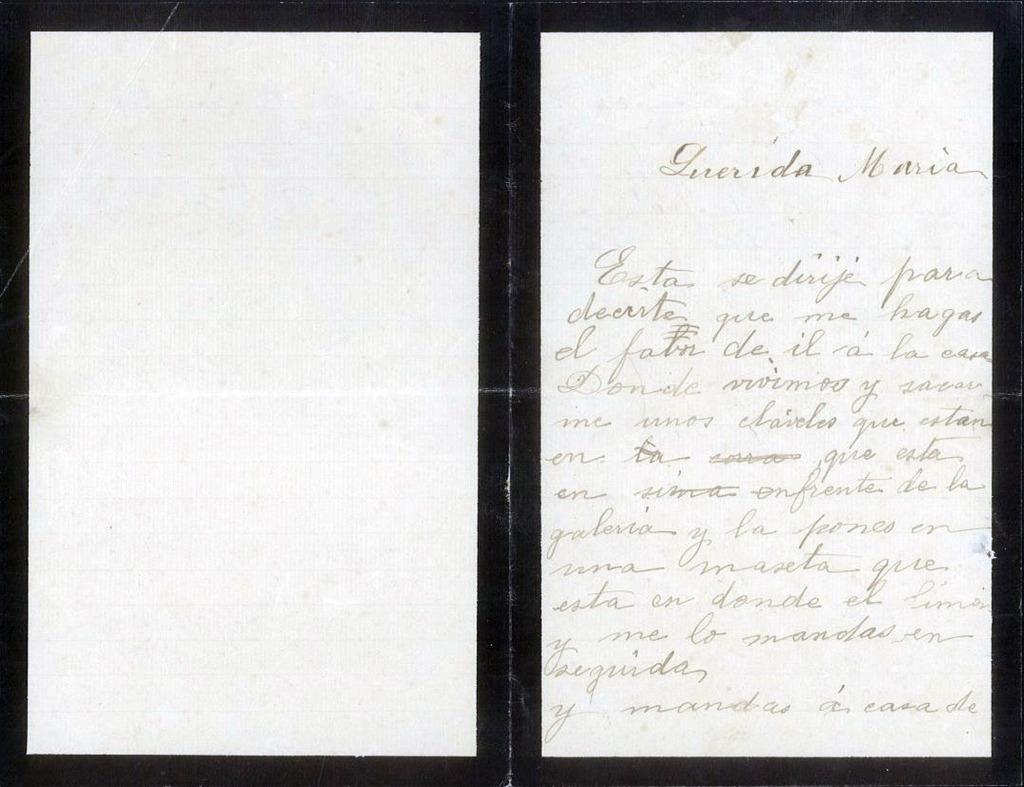 Querida Maria
Esta se dirije para
decirte que me hagas
el fabor de il á la casa
Donde vivimos y sacar
me unos claveles que estan
en la que esta
en sima enfrente de la
galeria y la pones en
una maseta que
esta en donde el limon
y me lo mandas en
seguida
y mandas á casa de